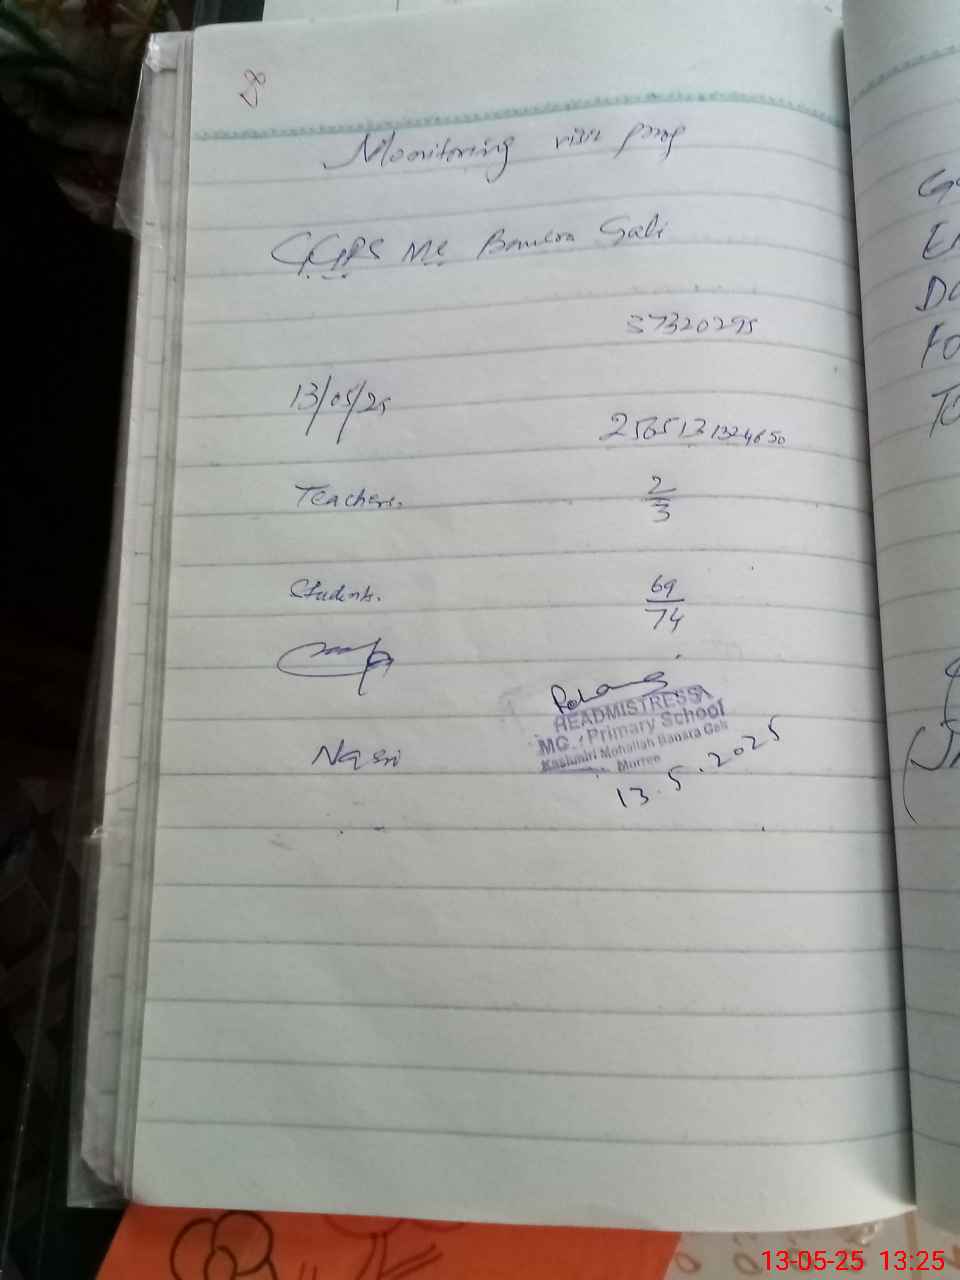 Monitoring visit
GGPS MC Bansra Gali
37320295
13/05/25
Teachers. 2/3
Students. 69/74
HEADMISTRESS
MC. Primary School
Kashmiri Mohallah Bansra Gali
Murree
13.5.2025
13-05-25 13:25